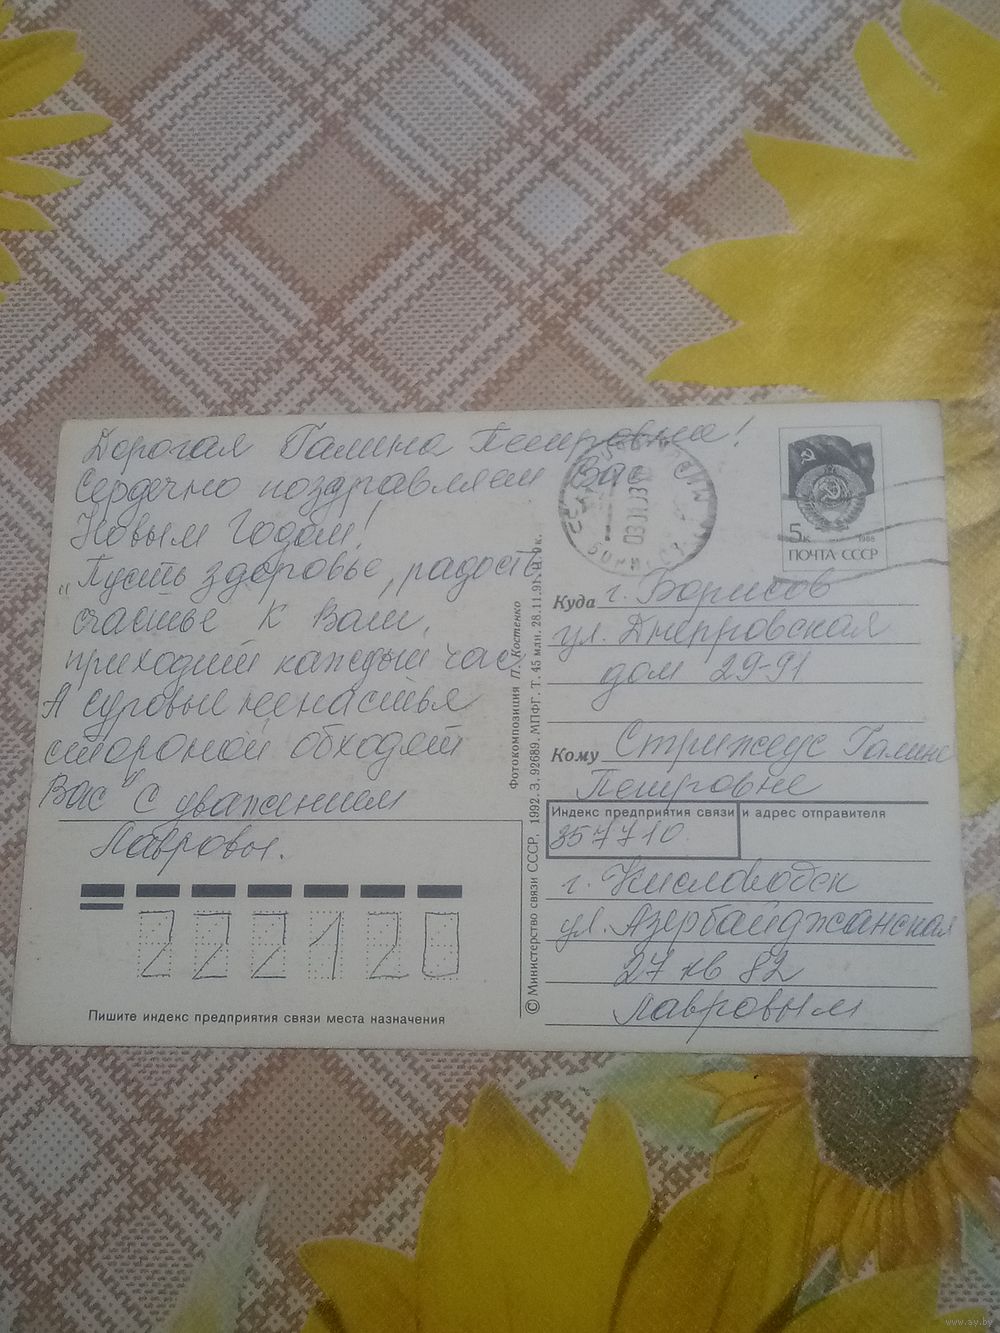 Дорогая Галина Петровна!
Сердечно поздравляем Вас
Новым Годом!
„Пусть здоровье, радость
счастье к Вам,
приходит каждый час
А суровые ненастья
стороной обходят
Вас" С уважением
Лавровы.
222120
Пишите индекс предприятия связи места назначения
Фотокомпозиция П. Костенко
© Министерство связи СССР. 1992. З. 92689. МПФГ. Т. 45 млн. 28.11.91.
5к
1988
ПОЧТА СССР
Куда г. Борисов
ул. Днепровская
дом 29-91
Кому Стрижеус Галине
Петровне
Индекс предприятия связи и адрес отправителя
357710
г. Кисловодск
ул. Азербайджанская
27 кв 82
Лавровым
www.ay.by